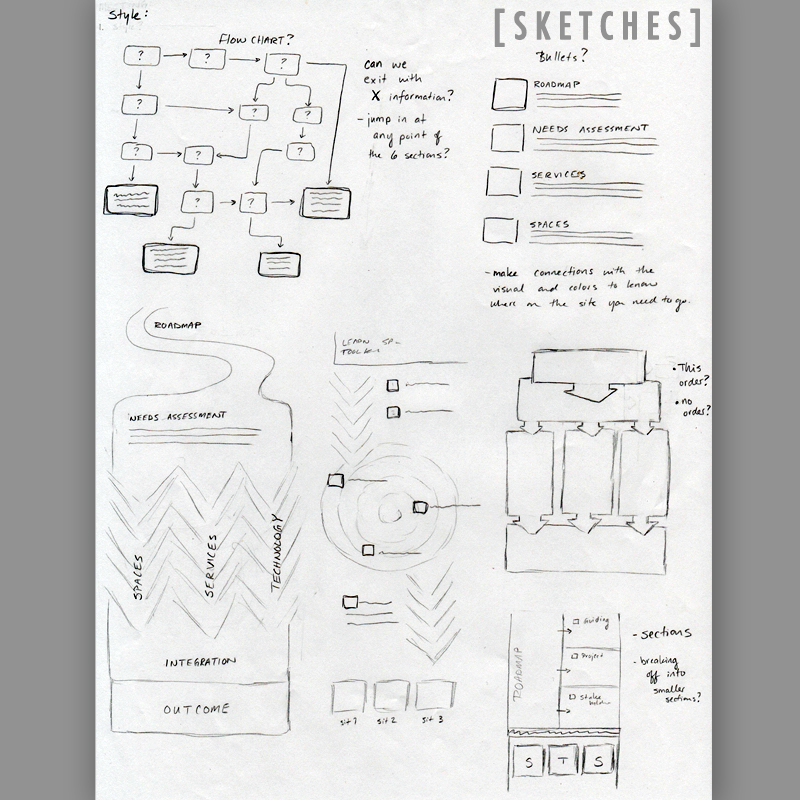 Style:
[SKETCHES]
FLOW CHART?
?
?
?
?
?
?
?
?
?
?
?
can we
exit with
X information?
- jump in at
any point of
the 6 sections?
Bullets?
ROADMAP
NEEDS ASSESSMENT
SERVICES
SPACES
- make connections with the
visual and colors to know
where on the site you need to go.
ROADMAP
NEEDS ASSESSMENT
SPACES
SERVICES
TECHNOLOGY
INTEGRATION
OUTCOME
LEARN
• This
order?
• no
order?
ROADMAP
Guiding
Project
Stake
S T S
- sections
- breaking
off into
smaller
sections?